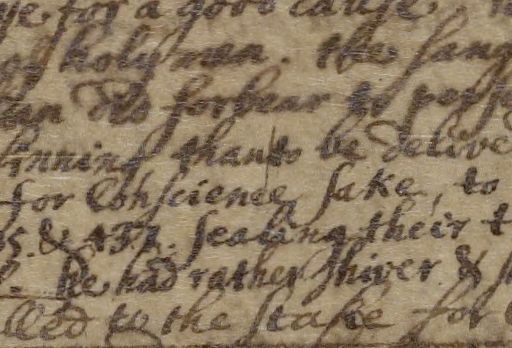 for a good cause,
holy men. the sang
an do forbear to
inning than to be delive
for Conscience sake, to
5. & 437. sealing their t
he had rather shiver &
lled to the stake for